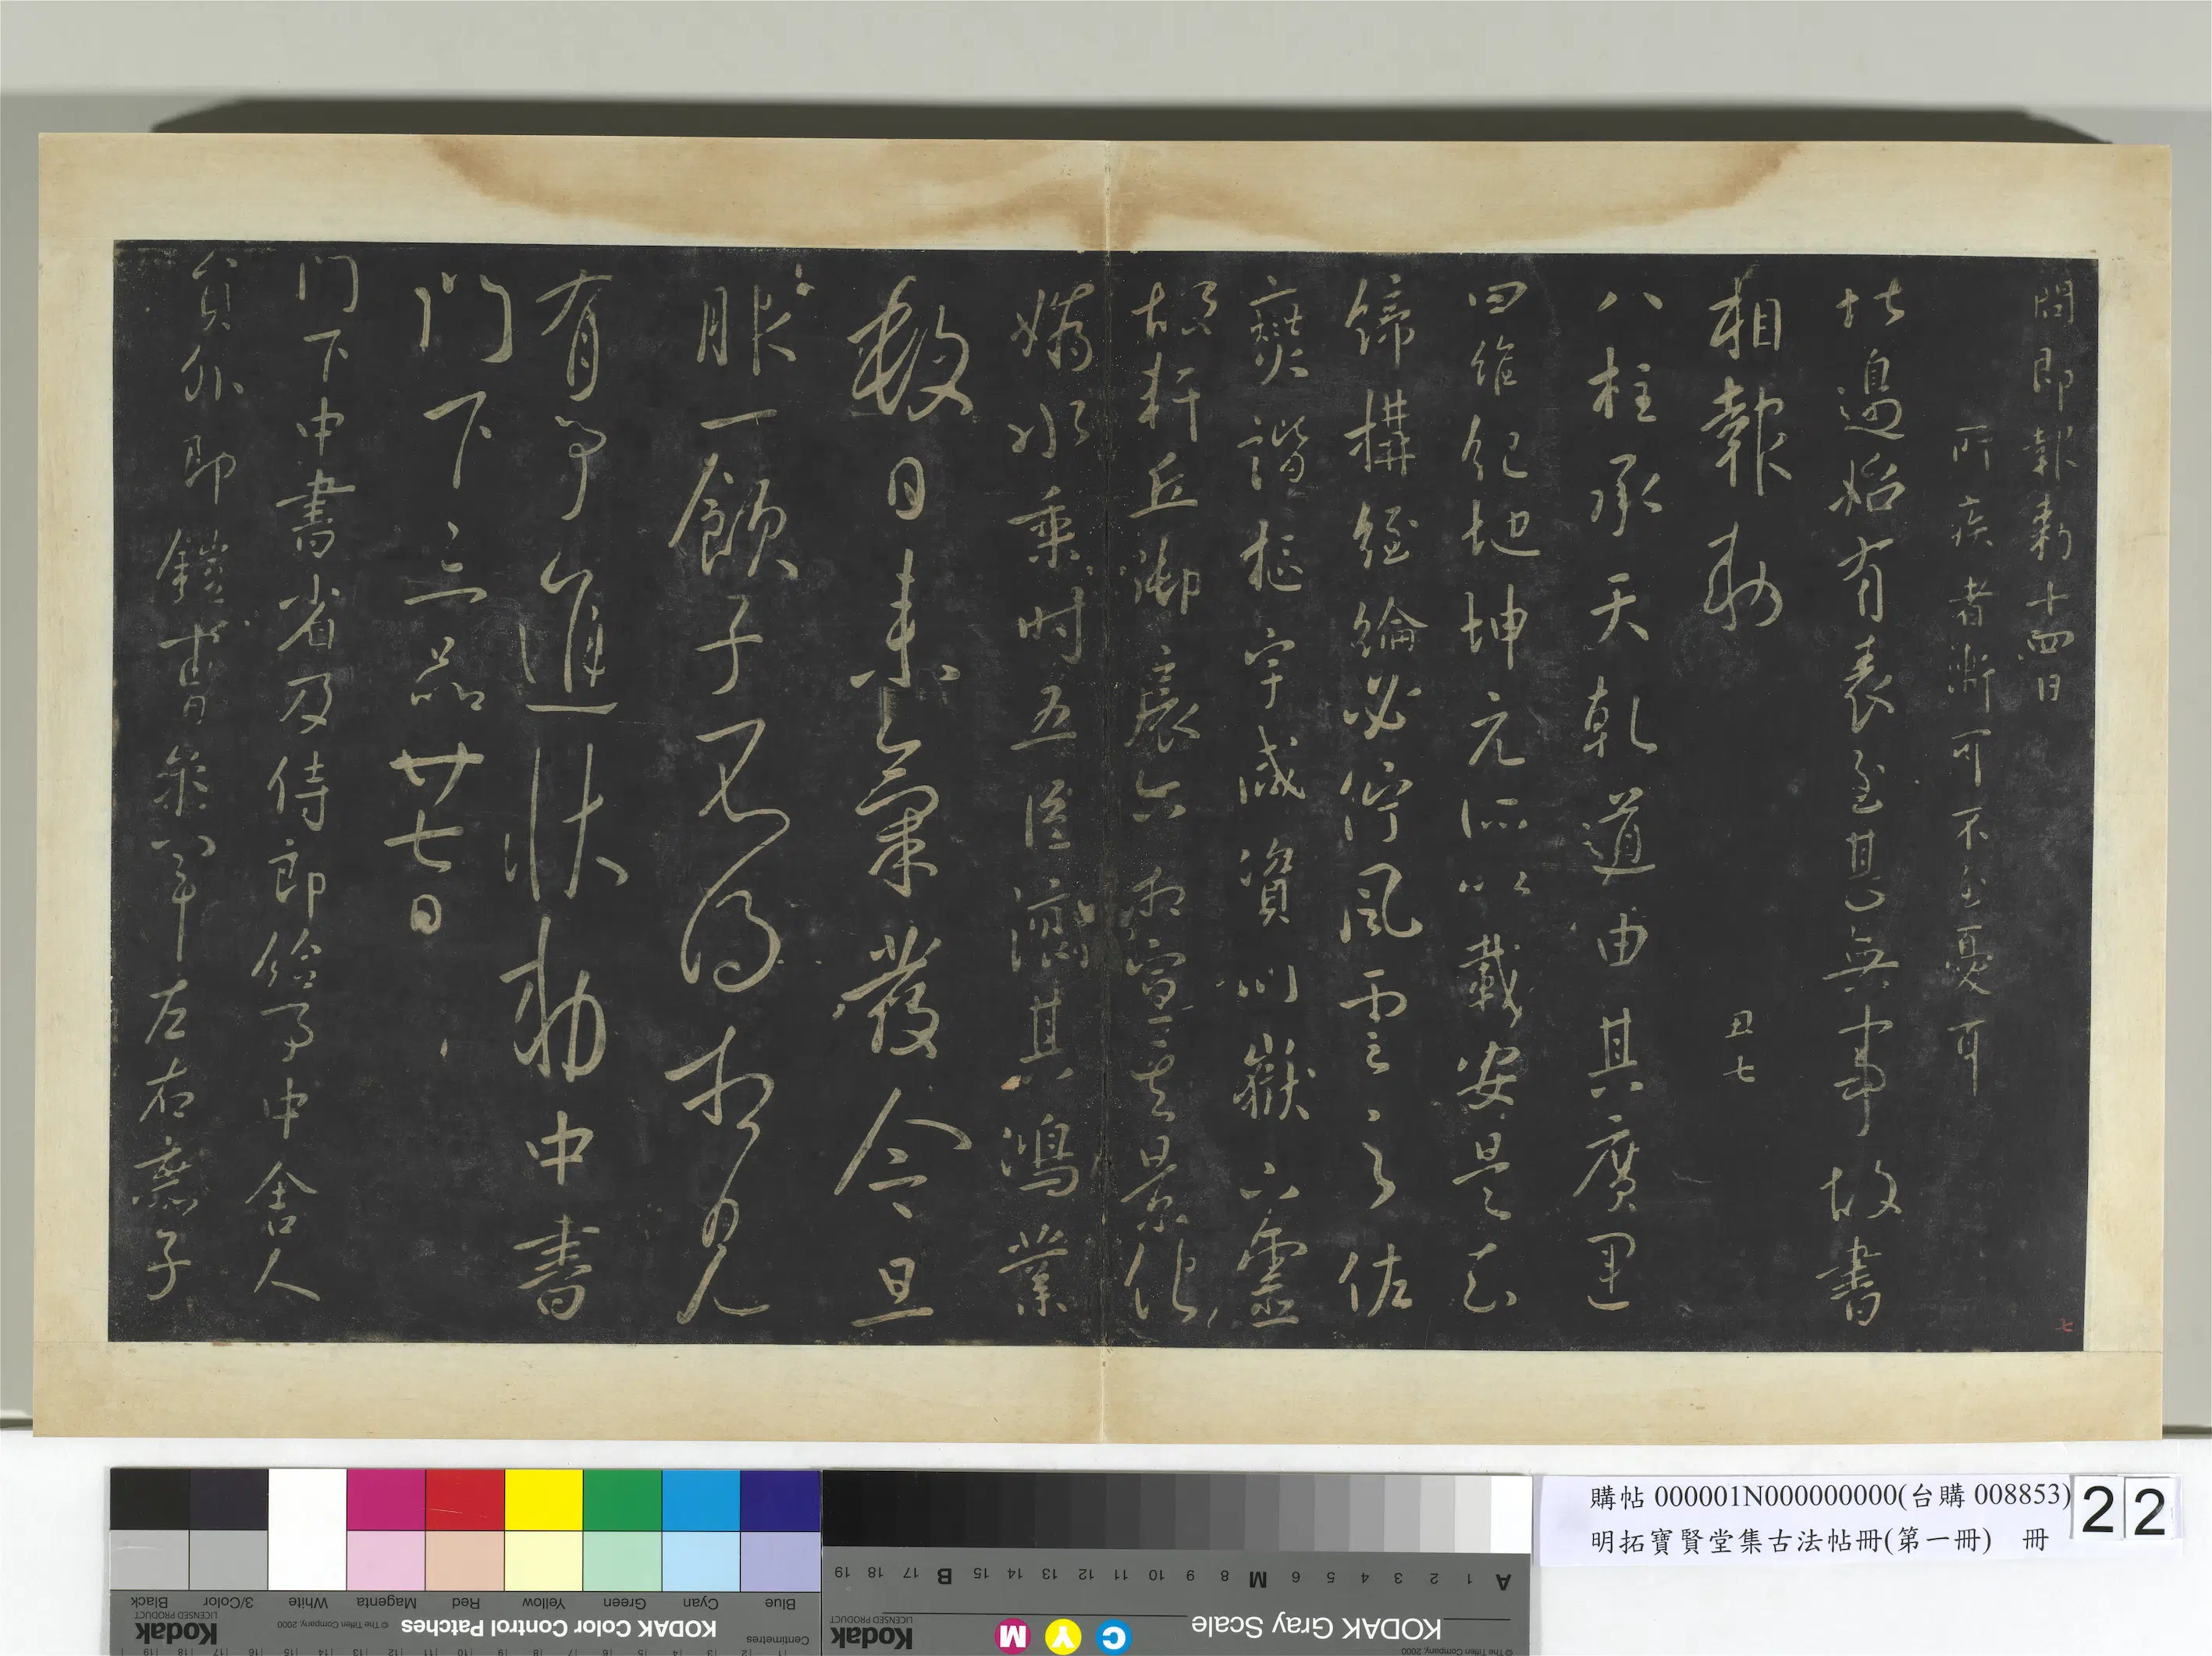 問即報勅十四日
所疾者漸可不至憂耳
比過始有表至其也無事故書
相報勅
丑七
八柱承天乾道由其廣運
四維紀地坤元所以載安是知
締構經綸必佇風雲之佐
燮諧樞宇咸資川嶽之靈
故軒丘御宸六相宣其景化
媯水乘時五臣濟其鴻業
數日來氣發今旦
服一飲子不得相見
有事進狀勅中書
門下三品廿七日
門下中書省及侍郎給事中舍人
員外郎鎧曹參軍左右庶子
七
購帖 000001N000000000(台購 008853)
明拓寶賢堂集古法帖冊(第一冊) 冊
22
KODAK Color Control Patches
Kodak
LICENSED PRODUCT
© The Tiffen Company, 2000
Centimetres
Blue Cyan Green Yellow Red Magenta White 3/Color Black
KODAK Gray Scale
Kodak
LICENSED PRODUCT
C Y M
© The Tiffen Company, 2000
A 1 2 3 4 5 6 M 8 9 10 11 12 13 14 15 B 17 18 19